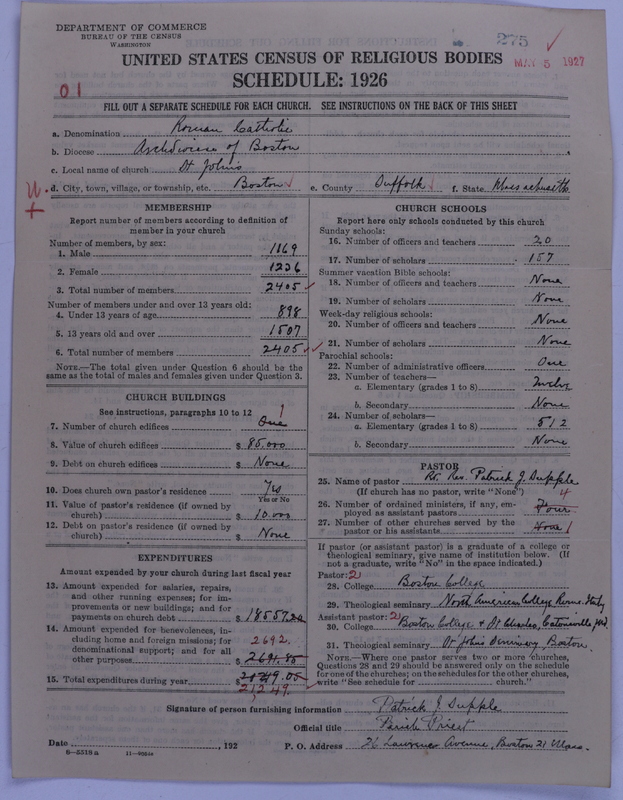 DEPARTMENT OF COMMERCE
BUREAU OF THE CENSUS
WASHINGTON
275
MAY 5 1927
UNITED STATES CENSUS OF RELIGIOUS BODIES
SCHEDULE: 1926
01
FILL OUT A SEPARATE SCHEDULE FOR EACH CHURCH. SEE INSTRUCTIONS ON THE BACK OF THIS SHEET
a. Denomination Roman Catholic
b. Diocese Archdiocese of Boston
c. Local name of church St Johns
d. City, town, village, or township, etc. Boston e. County Suffolk f. State Massachusetts
MEMBERSHIP
Report number of members according to definition of member in your church
Number of members, by sex:
1. Male 1169
2. Female 1236
3. Total number of members 2405
Number of members under and over 13 years old:
4. Under 13 years of age 898
5. 13 years old and over 1507
6. Total number of members 2405
NOTE.—The total given under Question 6 should be same as the total of males and females given under Question 3.
CHURCH BUILDINGS
See instructions, paragraphs 10 to 12
1
7. Number of church edifices One
8. Value of church edifices $ 85.000
9. Debt on church edifices $ None
10. Does church own pastor's residence Yes
Yes or No
11. Value of pastor's residence (if owned by church) $ 10.000
12. Debt on pastor's residence (if owned by church) $ None
EXPENDITURES
Amount expended by your church during last fiscal year
13. Amount expended for salaries, repairs, and other running expenses; for improvements or new buildings; and for payments on church debt $ 18557.20
14. Amount expended for benevolences, including home and foreign missions; for denominational support; and for all other purposes $ 2691.85
2692.
15. Total expenditures during year $ 21249.05
21249.
CHURCH SCHOOLS
Report here only schools conducted by this church
Sunday schools:
16. Number of officers and teachers 20
17. Number of scholars 157
Summer vacation Bible schools:
18. Number of officers and teachers None
19. Number of scholars None
Week-day religious schools:
20. Number of officers and teachers None
21. Number of scholars None
Parochial schools:
22. Number of administrative officers One
23. Number of teachers—
a. Elementary (grades 1 to 8) Twelve
b. Secondary None
24. Number of scholars—
a. Elementary (grades 1 to 8) 512
b. Secondary None
PASTOR
25. Name of pastor Rt. Rev. Patrick J. Supple
(If church has no pastor, write "None")
4
26. Number of ordained ministers, if any, employed as assistant pastors Four
27. Number of other churches served by the pastor or his assistants None 1
If pastor (or assistant pastor) is a graduate of a college or theological seminary, give name of institution below. (If not a graduate, write "No" in the space indicated.)
Pastor: 2
28. College Boston College
29. Theological seminary North American College Rome. Italy
Assistant pastor: 2
30. College Boston College & St Charles, Catonsville, Md.
31. Theological seminary St John's Seminary, Boston.
NOTE.—Where one pastor serves two or more churches, Questions 28 and 29 should be answered only on the schedule for one of the churches; on the schedules for the other churches, write "See schedule for church."
Signature of person furnishing information Patrick J. Supple
Official title Parish Priest
Date , 192 P. O. Address 26 Lawrence Avenue, Boston 21 Mass.
6—5518 a